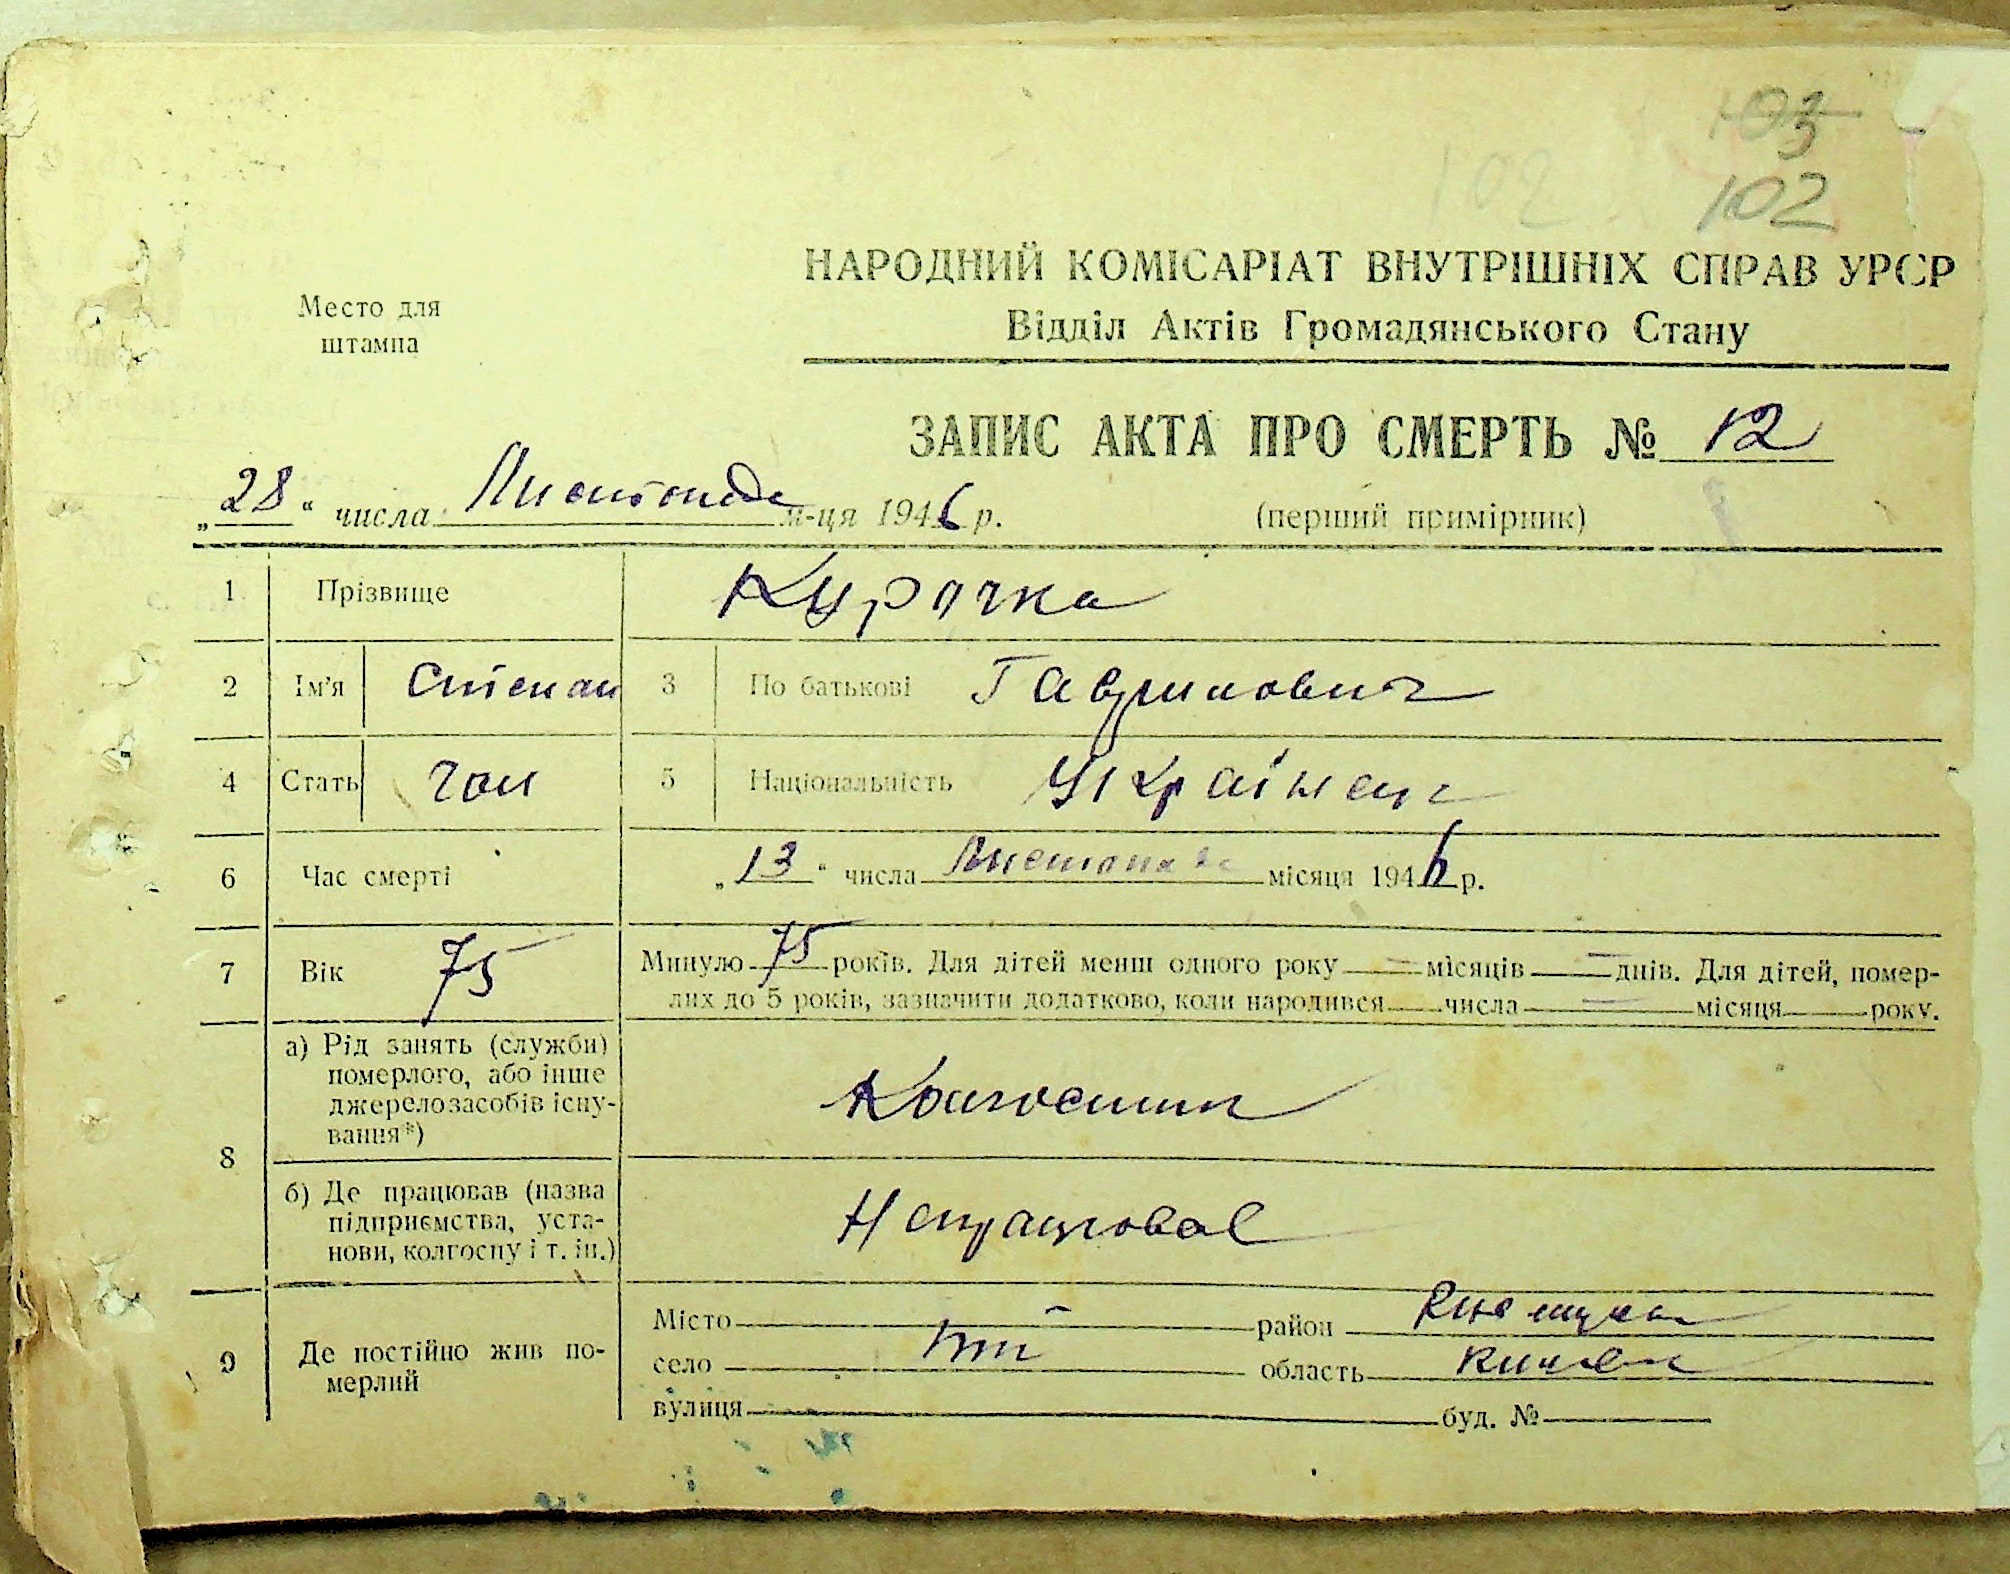 103
102
102
НАРОДНИЙ КОМІСАРІАТ ВНУТРІШНІХ СПРАВ УРСР
Место для
штампа
Відділ Актів Громадянського Стану
ЗАПИС АКТА ПРО СМЕРТЬ № 12
„28“ числа Листопада м-ця 1946 р.
(перший примірник)
1 Прізвище Курочка
2 Ім’я Степан 3 По батькові Гаврилович
4 Стать чол 5 Національність Українец
6 Час смерті „13“ числа Листопада місяця 1946 р.
7 Вік 75 Минуло 75 років. Для дітей менш одного року — місяців — днів. Для дітей, помер-
лих до 5 років, зазначити додатково, коли народився числа — місяця року.
8 а) Рід занять (служби)
померлого, або інше
джерело засобів існу-
вання*)
Колгоспник
б) Де працював (назва
підприємства, уста-
нови, колгоспу і т. ін.)
Непрацював
9 Де постійно жив по-
мерлий
Місто — район
село область
вулиця буд. №